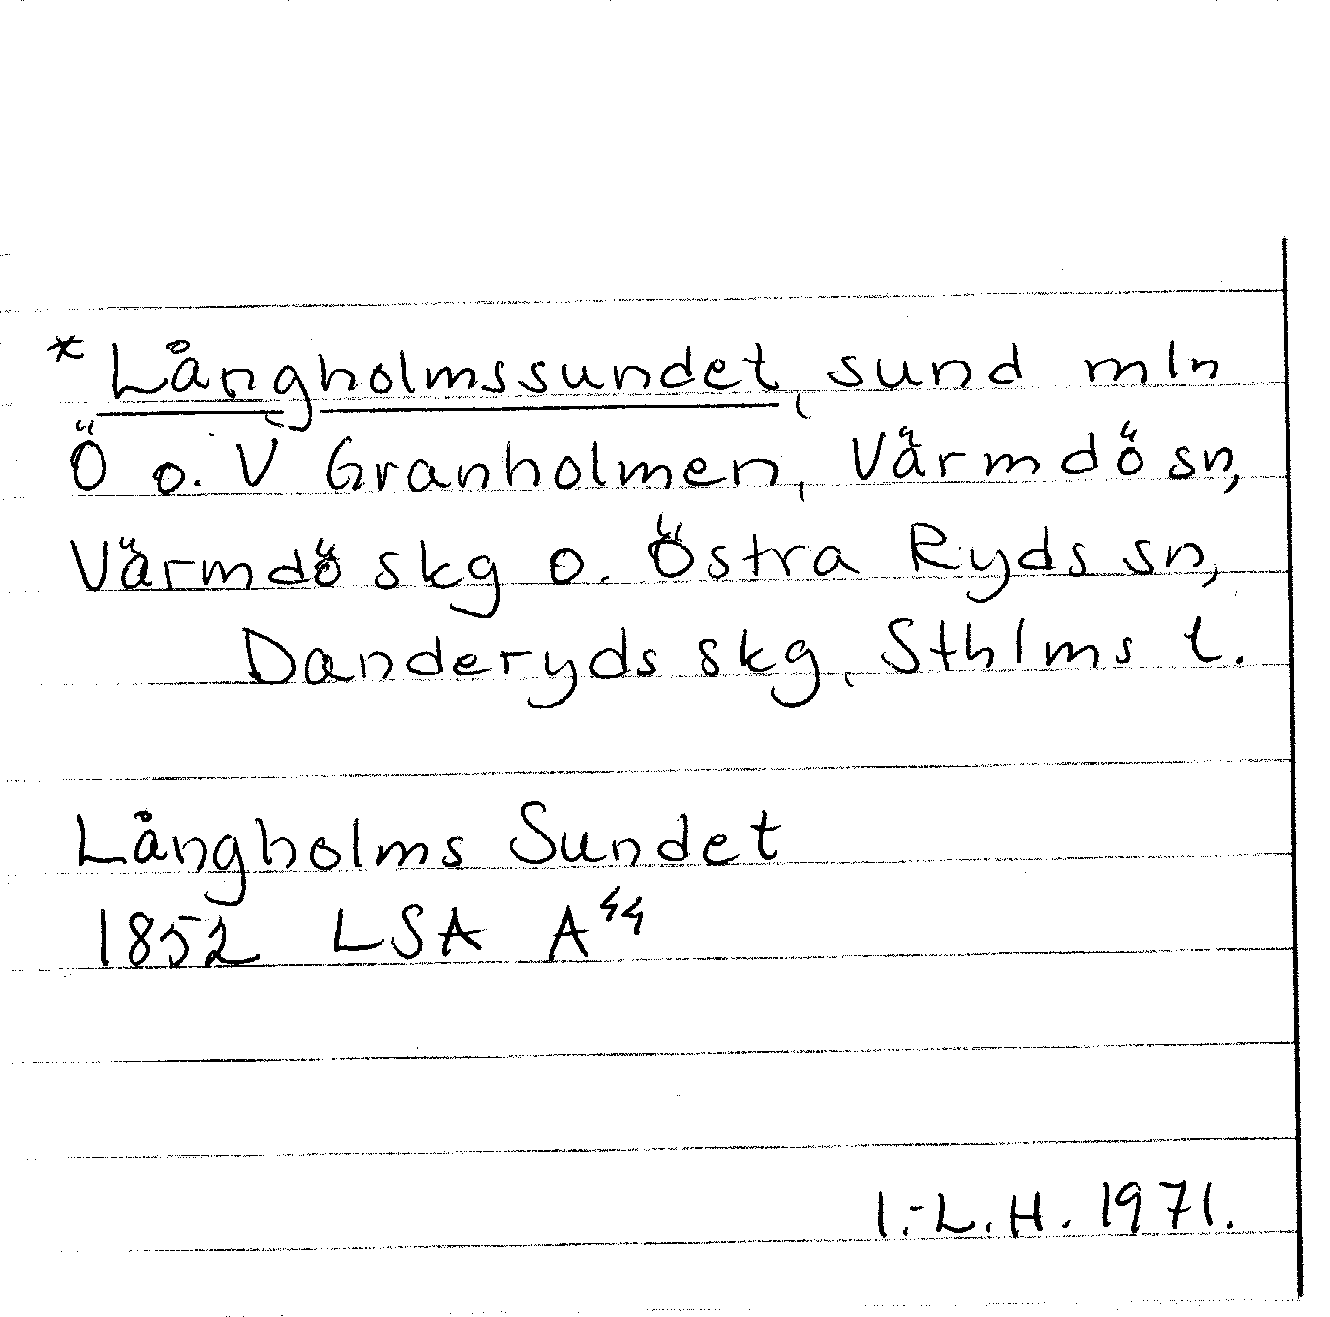 * Långholmssundet, sund mln
Ö o. V Granholmen, Värmdö sn,
Värmdö skg o. Östra Ryds sn,
Danderyds skg, Sthlms l.
Långholms Sundet
1852 LSA A⁴⁴
I.-L.H. 1971.